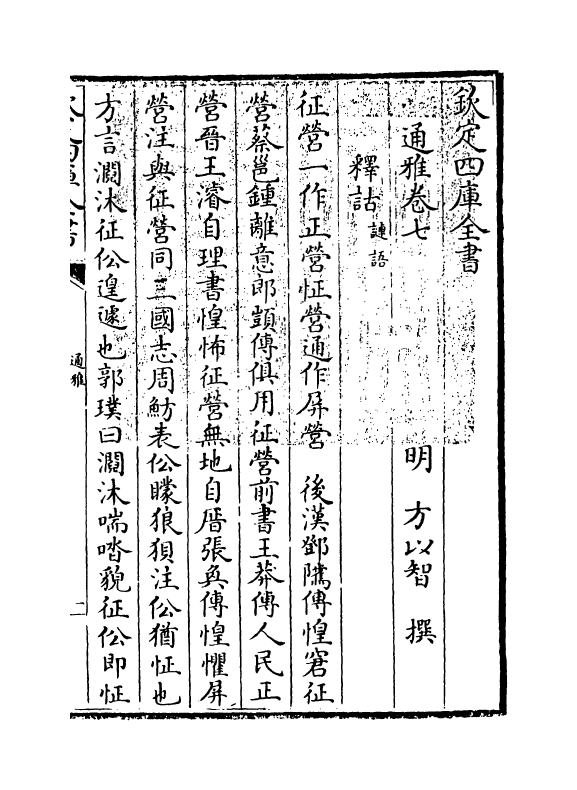 欽定四庫全書
通雅卷七
明 方以智 撰
釋詁 謰語
征營一作正營怔營通作屏營 後漢鄧隲傳惶窘征
營蔡邕鍾離意郎顗傳俱用征營前書王莽傳人民正
營晉王濬自理書惶怖征營無地自厝張奐傳惶懼屏
營注與征營同三國志周魴表伀矇狼狽注伀猶怔也
方言㵍沭征伀遑遽也郭璞曰㵍沭喘喈貌征伀即怔
通雅